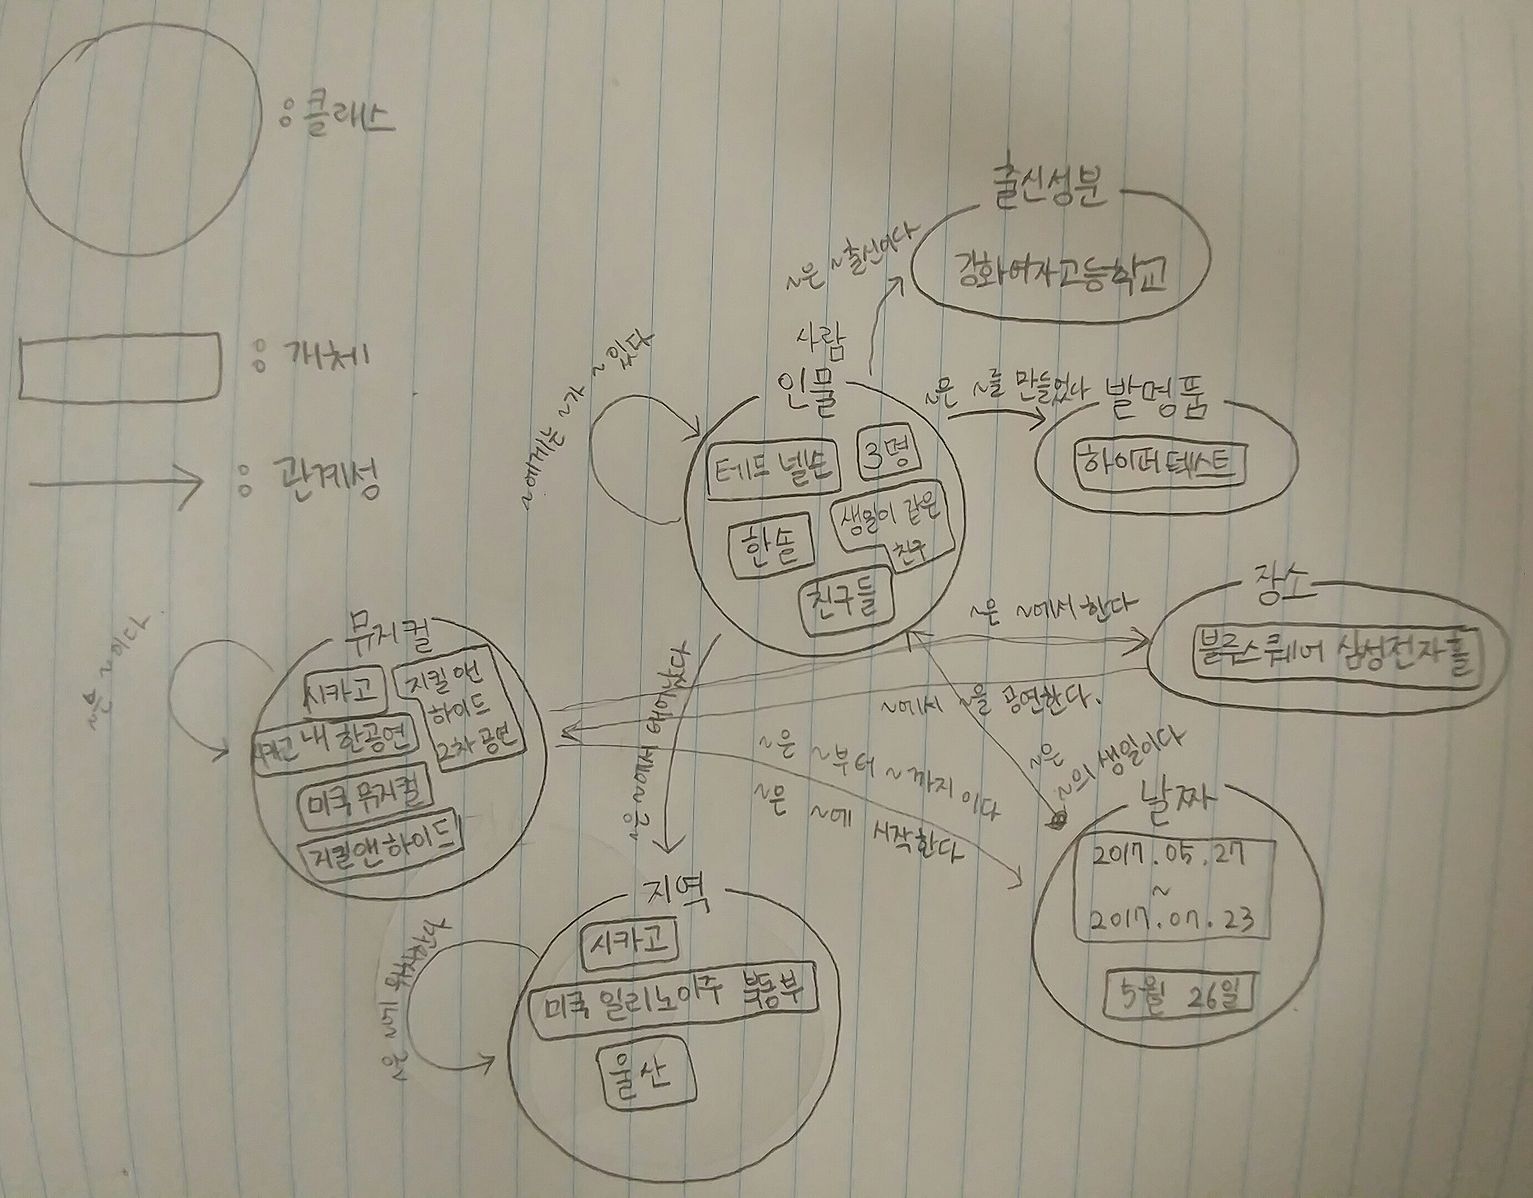 : 클래스
: 개체
: 관계성
출신성분
강화여자고등학교
~은 ~출신이다
사람
인물
테드 넬슨
3명
한솔
생일이 같은
친구
친구들
~에게는 ~가 ~ 있다
~은 ~를 만들었다
발명품
하이퍼텍스트
장소
블루스퀘어 삼성전자홀
~은 ~에서 한다
~에서 ~을 공연한다.
~은
~의 생일이다
~은 ~부터 ~까지 이다
~은 ~에 시작한다
날짜
2017.05.27
~
2017.07.23
5월 26일
뮤지컬
시카고
지킬 앤
하이드
2차 공연
시카고 내한공연
미국 뮤지컬
지킬앤하이드
~은 ~이다
~은 ~에서 태어났다
지역
시카고
미국 일리노이주 북동부
울산
~은 ~에 위치한다